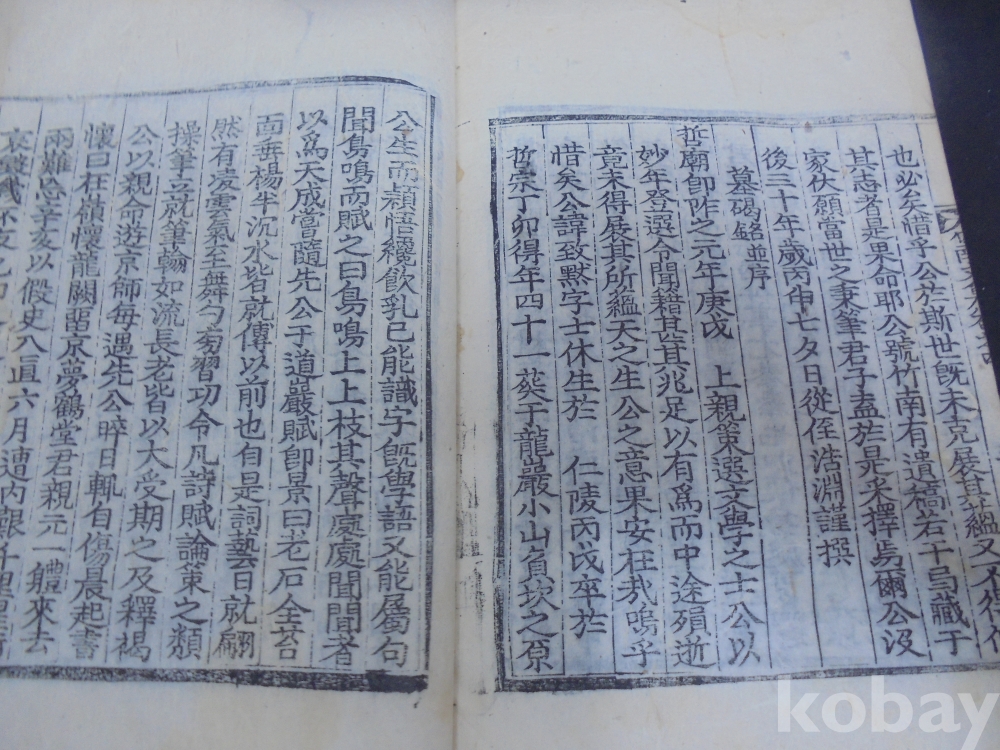 也必矣惜乎公於斯世旣未克展其蘊又不
其志者是果命耶公號竹南有遺稿若干弓藏于
家伏願當世之秉筆君子盍於是采擇焉爾公沒
後三十年歲丙申七夕日從侄浩淵謹撰
墓碣銘並序
哲廟卽阼之元年庚戌 上親策選文學之士公以
妙年登選令聞藉甚其兆足以有爲而中途殞逝
竟未得展其所蘊天之生公之意果安在哉嗚乎
惜矣公諱致默字士休生於 仁陵丙戌卒於
哲宗丁卯得年四十一葬于龍巖小山負坎之原
公生而穎悟纔飮乳已能識字旣學語又能屬句
聞鳥鳴而賦之曰鳥鳴上上枝其聲處處聞聞者
以爲天成嘗隨先公于道巖賦卽景曰老石全苔
面垂楊半沉水皆就傅以前也自是詞藝日就翩
然有凌雲氣至舞勺旁習功令凡詩賦論策之類
操筆立就筆翰如流長老皆以大受期之及釋褐
公以親命遊京師每遇先公晬日輒自傷晨起書
懷曰在嶺懷龍闕留京夢鶴堂君親元一軆來去
兩難忘辛亥以假史八直六月遭內艱千里